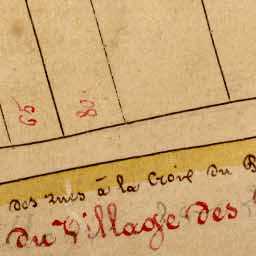 65
80
des rues à la Croix du B
du Village des